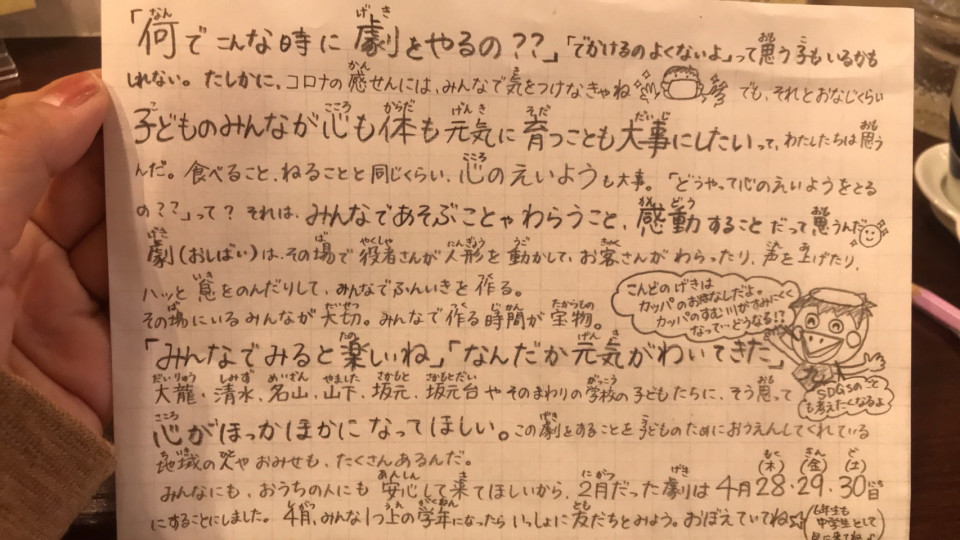 「何でこんな時に劇をやるの??」「でかけるのよくないよ」って思う子もいるかも
しれない。たしかに、コロナの感せんには、みんなで気をつけなきゃね でも、それとおなじくらい
子どものみんなが心も体も元気に育つことも大事にしたいって、わたしたちは思う
んだ。食べること、ねることと同じくらい、心のえいようも大事。「どうやって心のえいようをとる
の??」って?それは、みんなであそぶことやわらうこと、感動することだって思うんだ
劇(おしばい)は、その場で役者さんが人形を動かして、お客さんがわらったり、声を上げたり、
ハッと息をのんだりして、みんなでふんいきを作る。
その場にいるみんなが大切。みんなで作る時間が宝物。
こんどのげきは
カッパのお話なしだよ。
カッパのすむ川がすみにくく
なって…どうなる!?
「みんなでみると楽しいね」「なんだか元気がわいてきた」
大龍・清水・名山・山下・坂元・坂元台やそのまわりの学校の子どもたちに、そう思って
SDGsのことも
考えたくなるよ
心がほっかほかになってほしい。この劇をすることを子どものためにおうえんしてくれている
地域の人やおみせも、たくさんあるんだ。
みんなにも、おうちの人にも安心して来てほしいから、2月だった劇は4月28(木)・29(金)・30(土)日
にすることにしました。4月、みんな1つ上の学年になったらいっしょに友だちとみよう。おぼえていてね
(6年生も
中学生として
見に来てね♪)